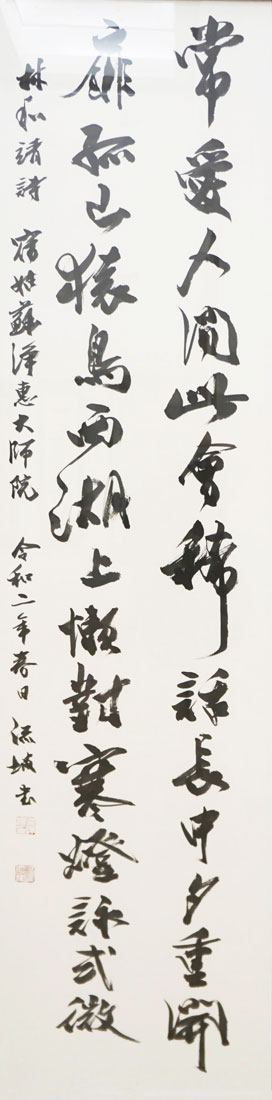 常愛人間此會稀話長中夕重開
扉孤山猿鳥西湖上懶對寒燈詠式微
林和靖詩 宿姑蘇淨惠大師院 令和二年春日 流坡書